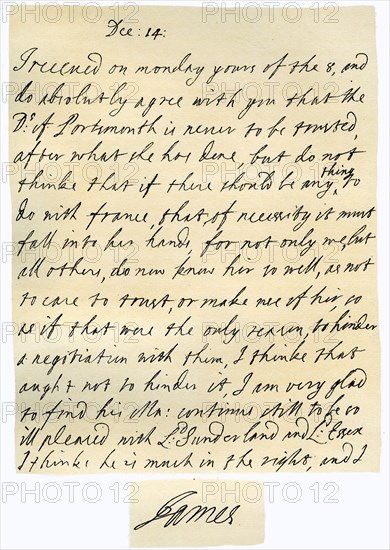 Dec: 14:
I receued on monday yours of the 8, and
do absolutly agree with you that the
Ds. of Portsmouth is never to be trusted,
after what she has done, but do not
thinke that if there should be any thing to
do with france, that, of necessity it must
fall into her hands, for not only me, but
all others, do now know her so well, as not
to care to trust, or make use of her, so
as if that were the only reason, to hinder
a negotiation with them, I thinke that
ought not to hinder it, I am very glad
to find his Ma: continus still to be so
ill pleased with Ld. Sunderland and Ld. Essex
I thinke he is much in the right, and I
James
PHOTO12